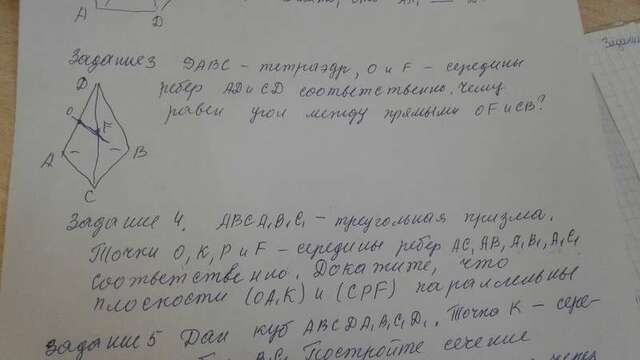 A D
Задание 3 DABC – тетраэдр, O и F – середины
ребер AD и CD соответственно. Чему
равен угол между прямыми OF и CB?
D
O
F
A B
C
Задание 4. ABCA₁B₁C₁ – треугольная призма.
Точки O, K, P и F – середины ребер AC, AB, A₁B₁, A₁C₁
соответственно. Докажите, что
плоскости (OA₁K) и (CPF) параллельны
Задание 5 Дан куб ABCDA₁B₁C₁D₁. Точка K – сере-
B₁C₁ Постройте сечение
Задани